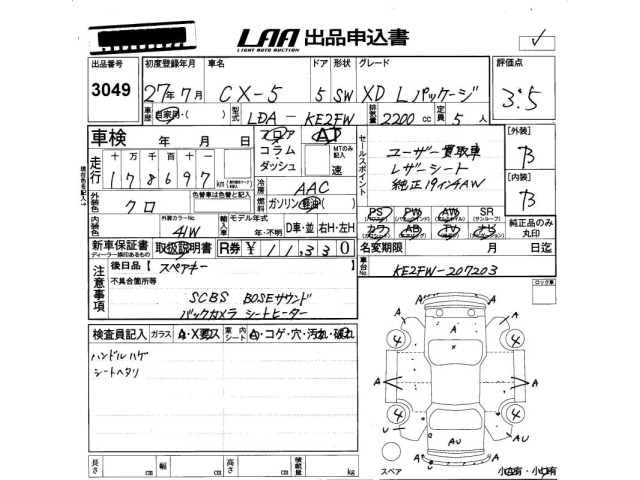 LAA 出品申込書
LIGHT AUTO AUCTION
出品番号 3049
初度登録年月 27年7月
車名 CX-5
ドア 5
形状 SW
グレード XD Lパッケージ
評価点 3.5
車歴 自家用・( )
型式 LDA-KE2FW
排気量 2200 cc
定員 5人
車検 年 月 日
フロア コラム・ダッシュ
AT
MTのみ記入 速
走行 十万 万 千 百 十
178697 km
冷房 AAC
セールスポイント
ユーザー買取車
レザーシート
純正19インチAW
[外装] B
[内装] B
外装色 クロ
色替車は色替と記入
燃料 ガソリン・軽油・( )
内装色
外装カラーNo. 41W
輸入車 モデル年式 年・不明
D車・並 右H・左H
PS PW AW SR
カワ AB TV ナビ
純正品のみ丸印
新車保証書
ディーラー様印あるもの
取扱説明書
R券 ¥ 11,330
名変期限 月 日迄
車台No. KE2FW-207203
注意事項
後日品 [ スペアキー ]
不具合箇所等
SCBS BOSEサウンド
バックカメラ シートヒーター
ロック車
検査員記入 ガラス A・X要ス 室内シート A・コゲ・穴・汚れ・破れ
ハンドルハゲ
シートヘタリ
A
A X A
4 4
A A
A A
4 4
U A AU U
AU A
長さ cm 幅 cm 高さ cm 積載量 kg
スペア
小凹有・小キ有